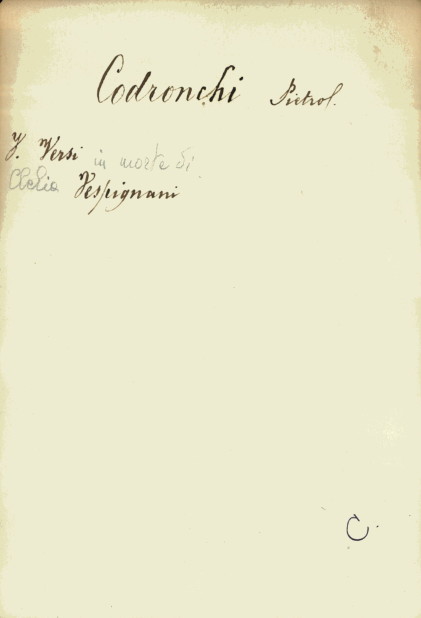 Codronchi Pietrol.
V. Versi in morte di
Clelia Vespignani
C.